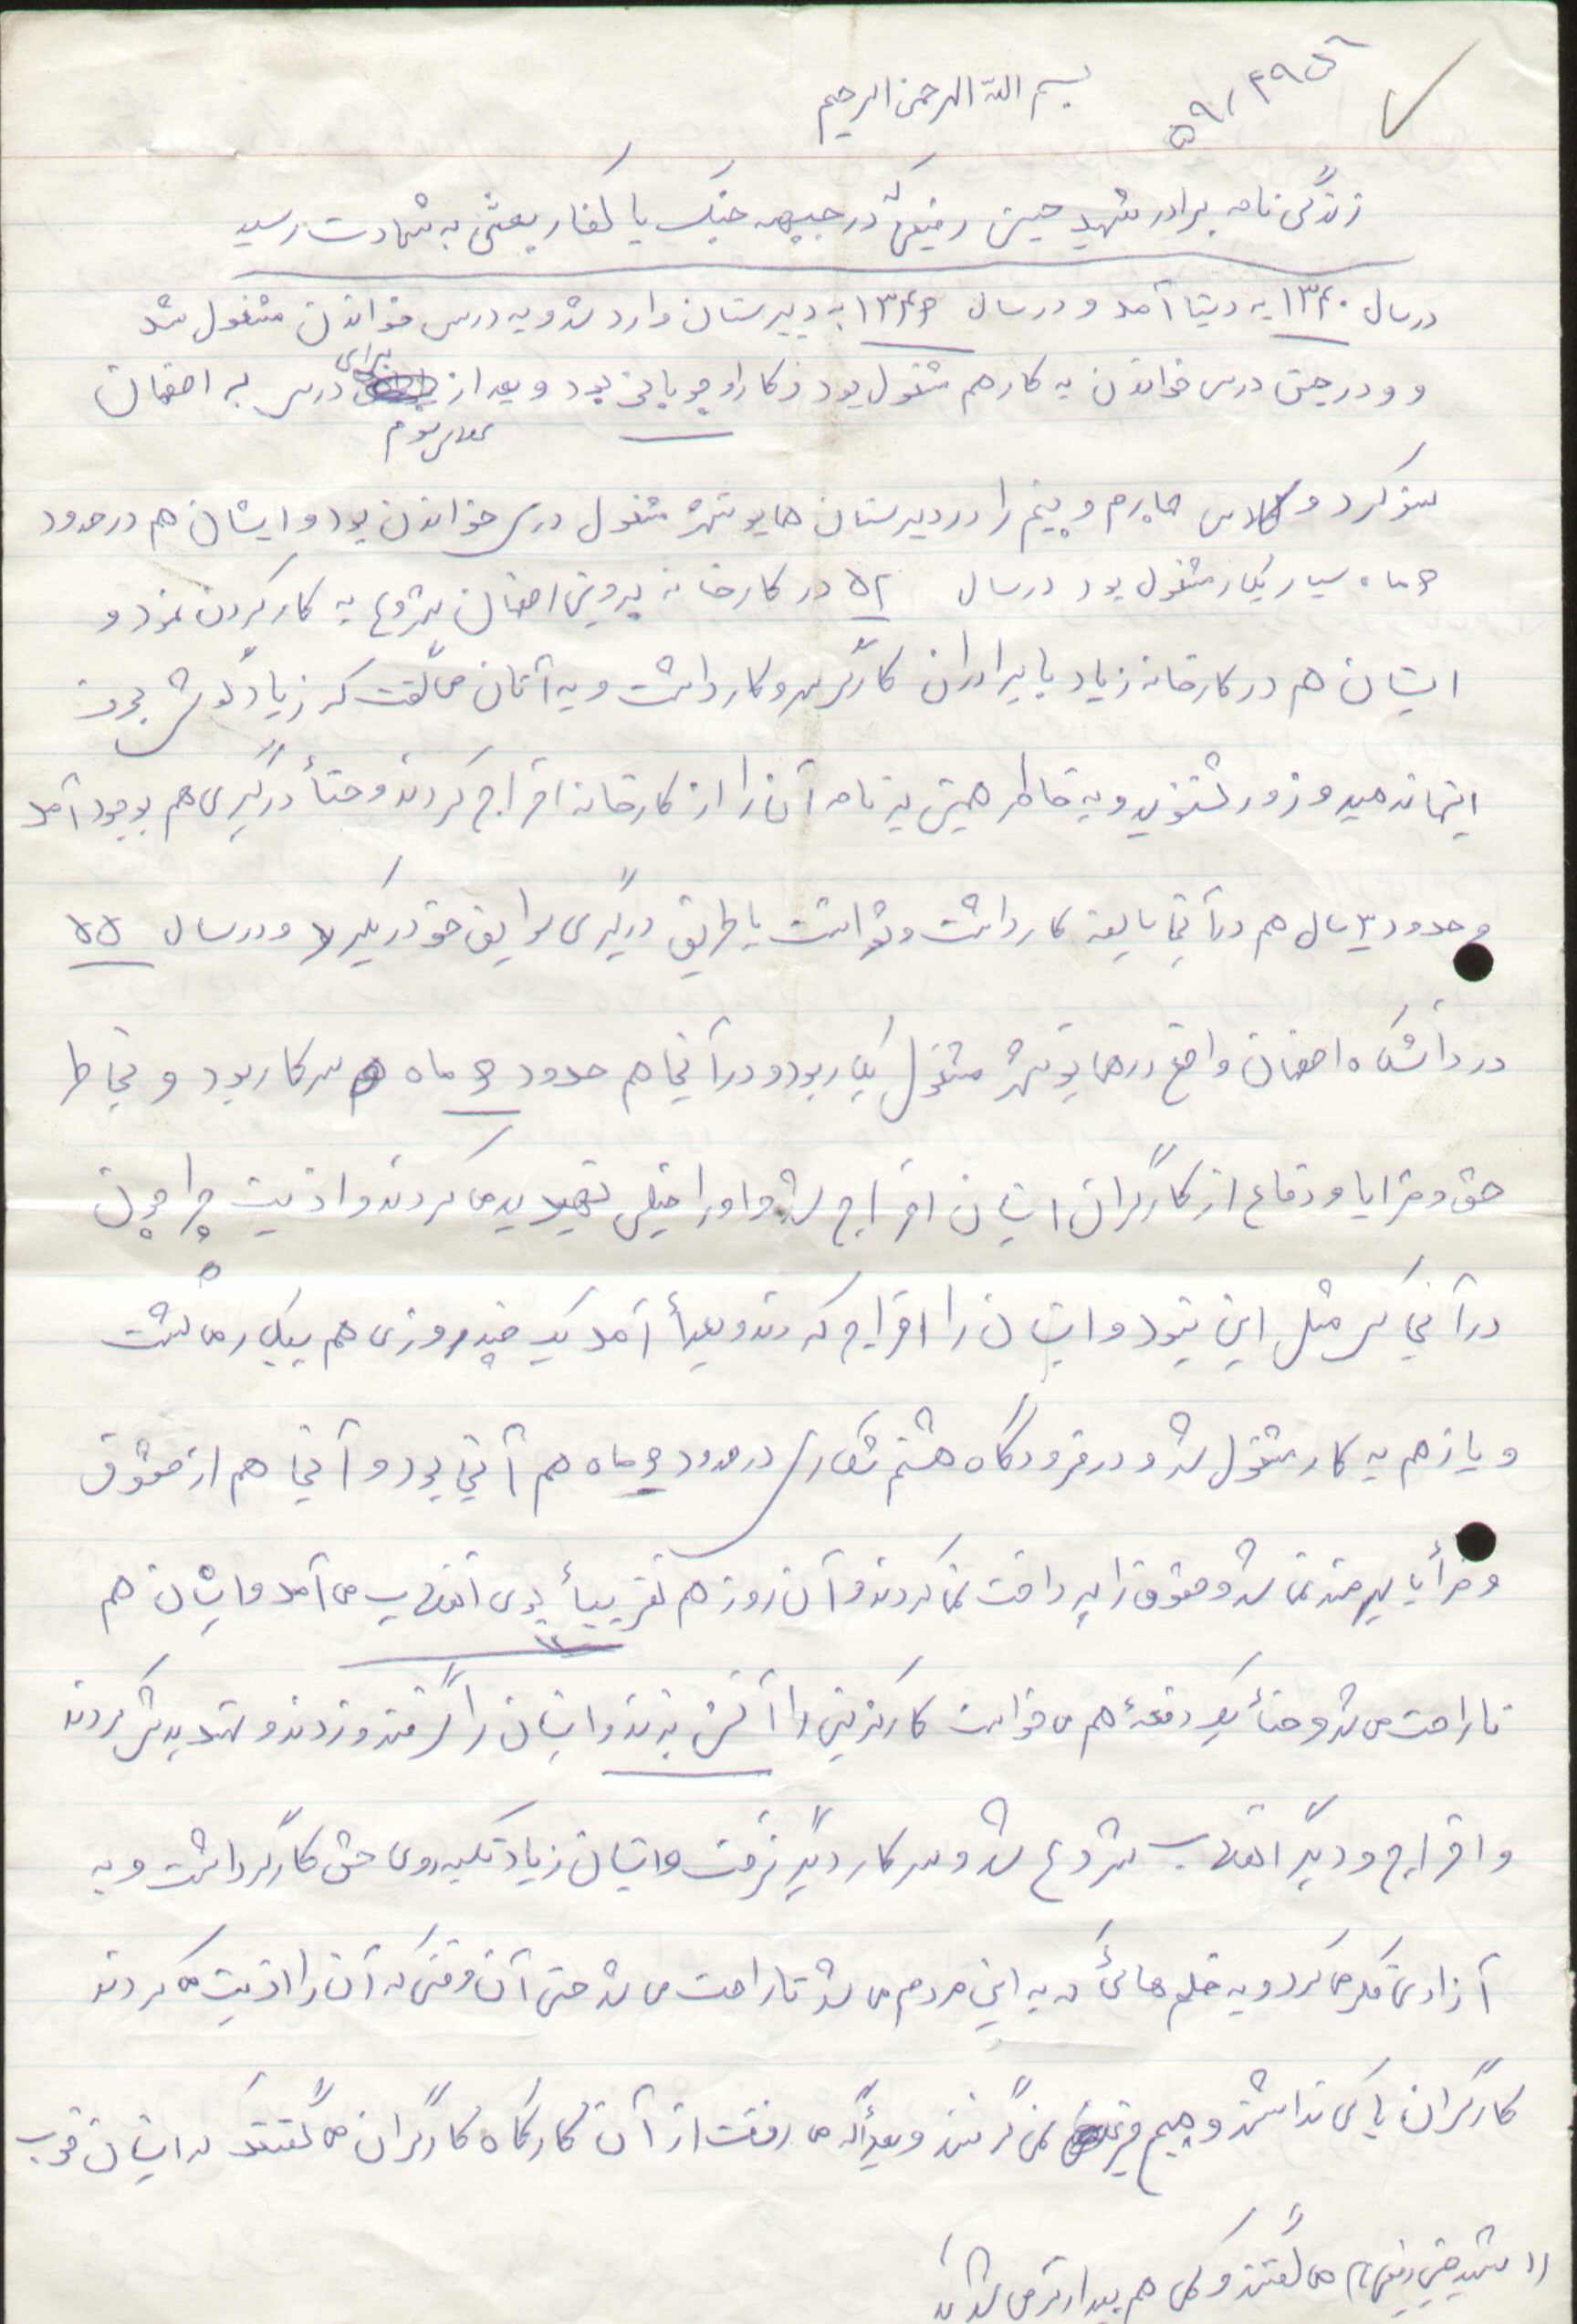 بسم الله الرحمن الرحیم
زندگی نامه برادر شهید حسین رفیعی که در جبهه جنگ با کفار بعثی به شهادت رسید
در سال ۱۳۴۰ به دنیا آمد و در سال ۱۳۴۶ به دبیرستان وارد شد و به درس خواندن مشغول شد
و و در حین درس خواندن به کار هم مشغول بود و کار او چوپانی بود و بعد از کلاس سوم برای درس به اصفهان
سفر کرد و کلاس چهارم و پنجم را در دبیرستان همایونشهر مشغول درس خواندن بود و ایشان هم در حدود
۶ ماه بسیار بیکار مشغول بود در سال ۵۲ در کارخانه پروین اصفهان شروع به کار کردن نمود و
ایشان هم در کارخانه زیاد با برادران کارگر سر و کار داشت و به آنان می گفت که زیاد گوش بحرف
اینها ندهید و زور نشنوید و به خاطر همین برنامه آن را از کارخانه اخراج کردند و حتأ درگیری هم بوجود آمد
و حدود ۳ سال هم در آنجا سابقه کار داشت و توانست با طریق درگیری سوابق خود را بگیرد و در سال ۵۵
در دانشگاه اصفهان واقع در همایونشهر مشغول بکار بود و در آنجا هم حدود ۶ ماه سر کار بود و بخاطر
حق و مزایا و دفاع از کارگران ایشان اخراج شد و او را خیلی تهدید می کردند و اذیت چرا چون
در آنجا کسی مثل این نبود و ایشان را اخراج کردند و بعدأ آمد یک چند روزی هم بیکار می گشت
و باز هم به کار مشغول شد و در فرودگاه هشتم شکاری در حدود ۶ ماه هم آنجا بود و آنجا هم از حقوق
و مزأیا بهرمند نمی شد و حقوق را پرداخت نمی کردند و آن روز هم تقریبأ بوی انقلاب می آمد و ایشان هم
ناراحت می شد و حتأ یک دفعۀ هم می خواست کارگزینی را آتش بزند و ایشان را گرفتند و زدند و تهدیدش کردند
و اخراج و دیگر انقلاب شروع شد و سر کار دیگر نرفت و ایشان زیاد تکیه روی حق کارگر داشت و به
آزادی فکر می کرد و به ظلم هائی که به این مردم می شد ناراحت می شد حتی آن وقتی که آن را اذیت می کردند
کارگران باکی نداشتند و هیچ نمی گرفتند و بعدأ که می رفت از آن کارگاه کارگران می گفتند که ایشان خوب
شهید حسین رفیعی می گفتند و کمی هم بیدارتر می شدند